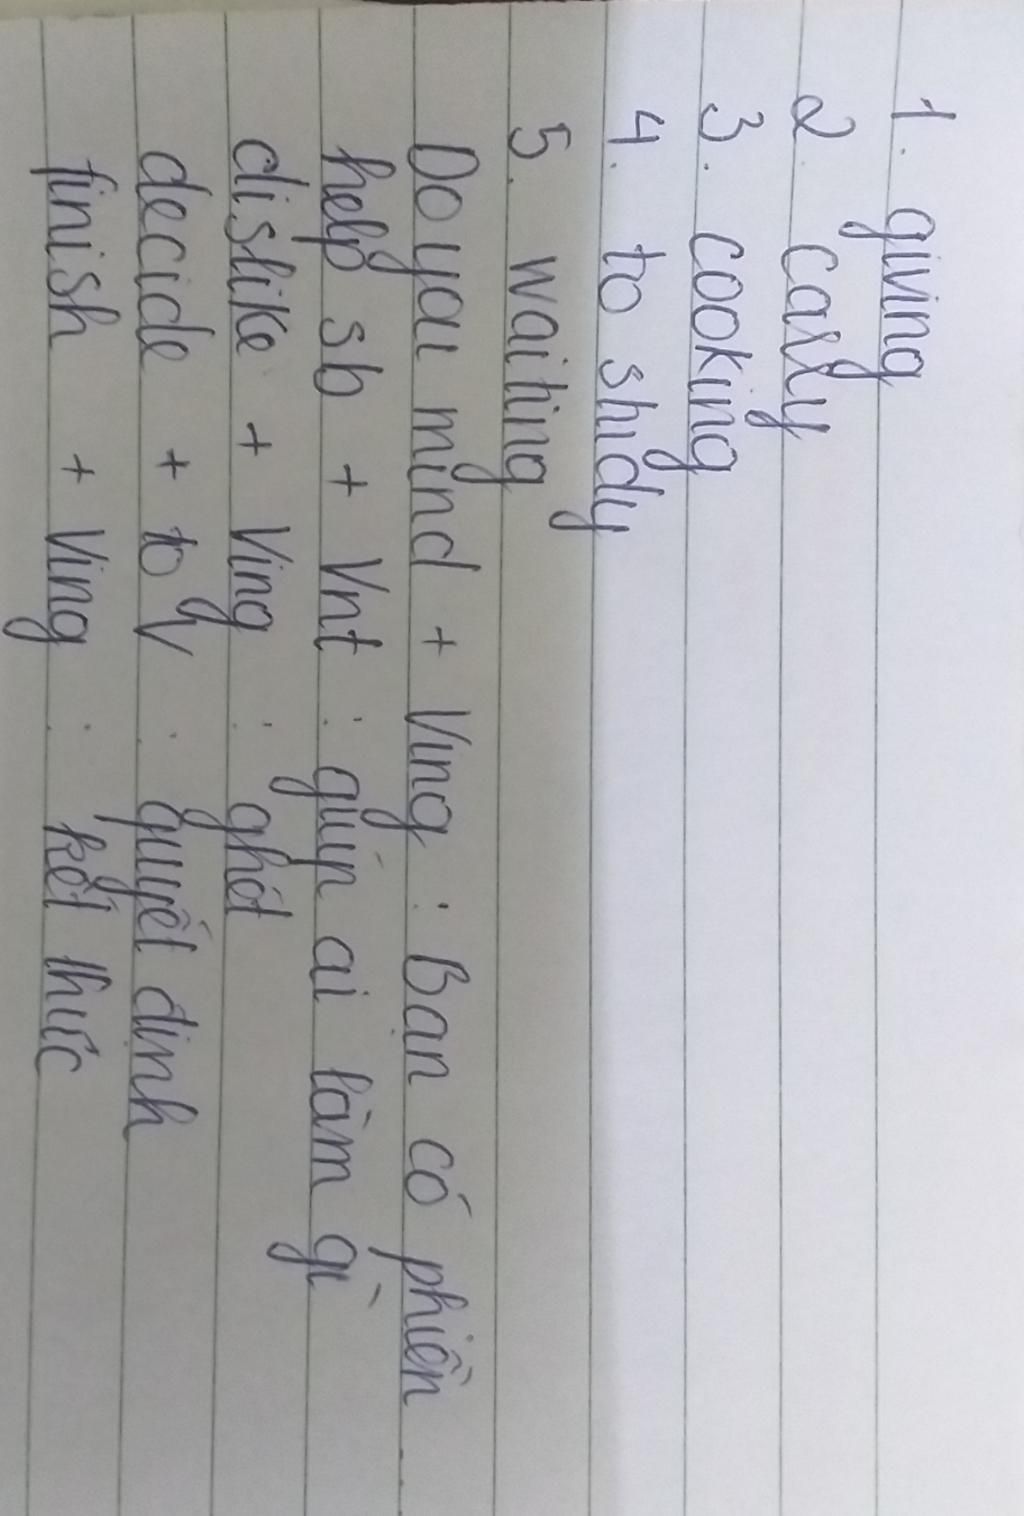 1. giving
2. carry
3. cooking
4. to study
5. waiting
Do you mind + Ving : Bạn có phiền
help sb + Vnt : giúp ai làm gì
dislike + Ving : ghét
decide + to V : quyết định
finish + Ving : kết thúc